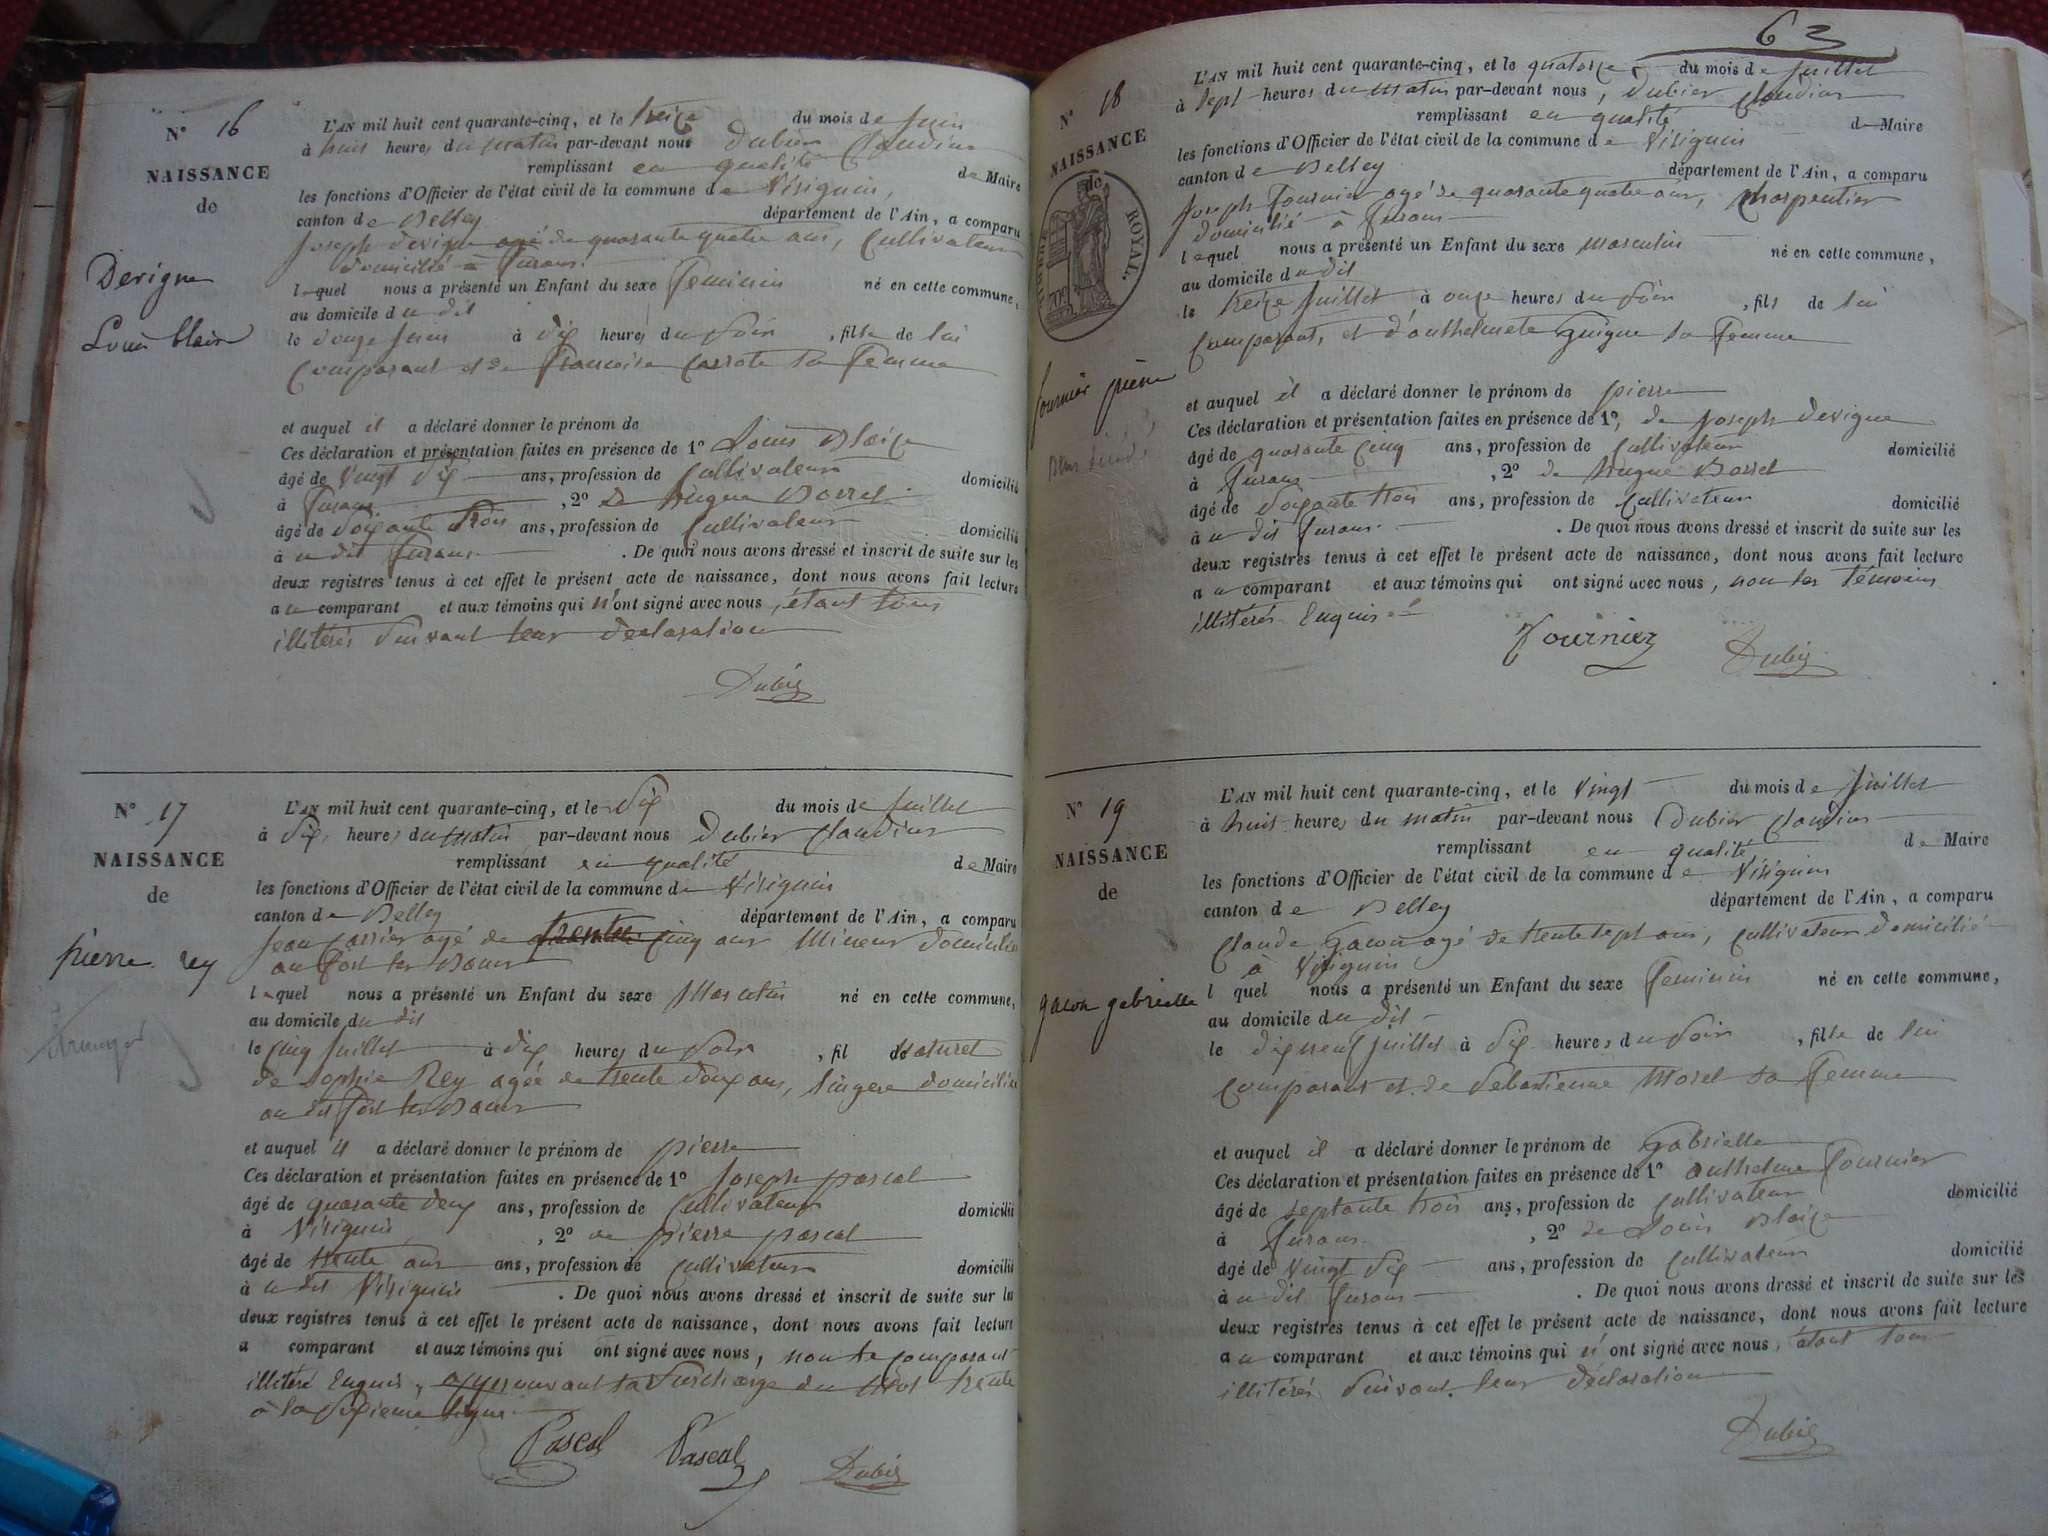 N° 16
NAISSANCE
de
Derigne
L'AN mil huit cent quarante-cinq, et le treize du mois de Juin
à huit heures du matin par-devant nous Dubier Claudius
remplissant en qualité de Maire
les fonctions d'Officier de l'état civil de la commune de Virignin,
canton de Belley département de l'Ain, a comparu
Joseph Derigne agé de quarante quatre ans, Cultivateur
domicilié à furans
lequel nous a présenté un Enfant du sexe feminin né en cette commune,
au domicile du dit
le douze Juin à dix heures du Soir, fille de lui
Comparant et de francoise Carrote sa femme
et auquel il a déclaré donner le prénom de
Ces déclaration et présentation faites en présence de 1° Louis Blaize
âgé de Vingt Six ans, profession de Cultivateur domicilié
à furans, 2° de hugue Borrel
âgé de Soixante trois ans, profession de Cultivateur domicilié
à u dit furans. De quoi nous avons dressé et inscrit de suite sur les
deux registres tenus à cet effet le présent acte de naissance, dont nous avons fait lecture
au comparant et aux témoins qui n'ont signé avec nous, étant tous
illitérés Suivant leur declaration
Dubier
N° 17
NAISSANCE
de
pierre rey
L'AN mil huit cent quarante-cinq, et le Six du mois de Juillet
à Six heures du matin par-devant nous Dubier Claudius
remplissant en qualité de Maire
les fonctions d'Officier de l'état civil de la commune de Virignin
canton de Belley département de l'Ain, a comparu
Jean Carrier agé de trente cinq ans Mineur domicilié
au fort les Bancs
lequel nous a présenté un Enfant du sexe Masculin né en cette commune,
au domicile du dit
le Cinq Juillet à dix heures du Soir, fil Naturel
de Sophie Rey agée de trente deux ans, lingere domiciliée
au dit fort les Bancs
et auquel il a déclaré donner le prénom de pierre
Ces déclaration et présentation faites en présence de 1° Joseph pascal
âgé de quarante deux ans, profession de Cultivateur domicilié
à Virignin, 2° de pierre pascal
âgé de trente ans ans, profession de Cultivateur domicilié
à u dit Virignin. De quoi nous avons dressé et inscrit de suite sur les
deux registres tenus à cet effet le présent acte de naissance, dont nous avons fait lecture
a comparant et aux témoins qui ont signé avec nous, non le comparant
illitéré Enquis, approuvant la Surcharge du mot trente
à la Sixieme ligne
Pascal Pascal Dubier
63
N° 18
NAISSANCE
de
TIMBRE ROYAL.
fournier pierre
L'AN mil huit cent quarante-cinq, et le quatorze du mois de Juillet
à Sept heures du matin par-devant nous, Dubier Claudius
remplissant en qualité de Maire
les fonctions d'Officier de l'état civil de la commune de Virignin
canton de Belley département de l'Ain, a comparu
Joseph fournier agé de quarante quatre ans, Charpentier
domicilié à furans
lequel nous a présenté un Enfant du sexe masculin né en cette commune,
au domicile du dit
le treize Juillet à onze heures du Soir, fils de lui
Comparant, et d'anthelmete Guigue sa femme
et auquel il a déclaré donner le prénom de pierre
Ces déclaration et présentation faites en présence de 1°, de Joseph Derigne
âgé de quarante Cinq ans, profession de Cultivateur domicilié
à furans, 2° de hugue Borrel
âgé de Soixante trois ans, profession de Cultivateur domicilié
à u dit furans. De quoi nous avons dressé et inscrit de suite sur les
deux registres tenus à cet effet le présent acte de naissance, dont nous avons fait lecture
au comparant et aux témoins qui ont signé avec nous, non les témoins
illitérés Enquis
Fournier Dubier
N° 19
NAISSANCE
de
gacon gabrielle
L'AN mil huit cent quarante-cinq, et le Vingt du mois de Juillet
à huit heures du matin par-devant nous Dubier Claudius
remplissant en qualité de Maire
les fonctions d'Officier de l'état civil de la commune de Virignin
canton de Belley département de l'Ain, a comparu
Claude Gacon agé de trente sept ans, Cultivateur domicilié
à Virignin
l quel nous a présenté un Enfant du sexe feminin né en cette commune,
au domicile du dit
le dix neuf Juillet à Six heures du Soir, fille de lui
Comparant et de Sebastienne Morel sa femme
et auquel il a déclaré donner le prénom de Gabrielle
Ces déclaration et présentation faites en présence de 1° anthelme Fournier
âgé de septante trois ans, profession de Cultivateur domicilié
à furans, 2° de Louis Blaize
âgé de Vingt Six ans, profession de Cultivateur domicilié
à u dit furans. De quoi nous avons dressé et inscrit de suite sur les
deux registres tenus à cet effet le présent acte de naissance, dont nous avons fait lecture
au comparant et aux témoins qui n'ont signé avec nous, étant tous
illitérés Suivant leur déclaration
Dubier